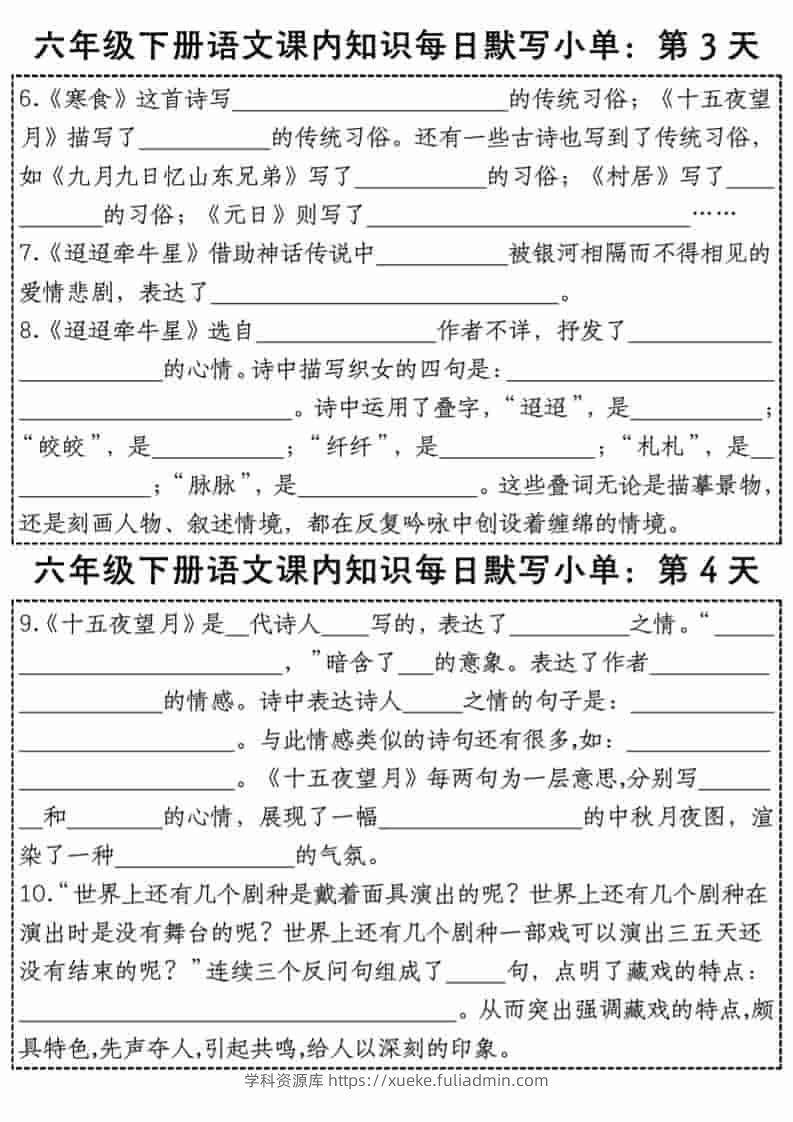 六年级下册语文课内知识每日默写小单：第 3 天
6.《寒食》这首诗写______________________的传统习俗；《十五夜望
月》描写了___________的传统习俗。还有一些古诗也写到了传统习俗，
如《九月九日忆山东兄弟》写了___________的习俗；《村居》写了____
_______的习俗；《元日》则写了___________________________……
7.《迢迢牵牛星》借助神话传说中___________被银河相隔而不得相见的
爱情悲剧，表达了_____________________________。
8.《迢迢牵牛星》选自_______________作者不详，抒发了____________
____________的心情。诗中描写织女的四句是：______________________
_______________________。诗中运用了叠字，“迢迢”，是___________；
“皎皎”，是___________；“纤纤”，是_____________；“札札”，是__
___________；“脉脉”，是_______________。这些叠词无论是描摹景物，
还是刻画人物、叙述情境，都在反复吟咏中创设着缠绵的情境。
六年级下册语文课内知识每日默写小单：第 4 天
9.《十五夜望月》是__代诗人____写的，表达了__________之情。“_____
______________________，”暗含了___的意象。表达了作者__________
____________的情感。诗中表达诗人_____之情的句子是：____________
__________________。与此情感类似的诗句还有很多,如：____________
__________________。《十五夜望月》每两句为一层意思,分别写______
__和________的心情，展现了一幅_________________的中秋月夜图，渲
染了一种_______________的气氛。
10.“世界上还有几个剧种是戴着面具演出的呢？世界上还有几个剧种在
演出时是没有舞台的呢？世界上还有几个剧种一部戏可以演出三五天还
没有结束的呢？”连续三个反问句组成了_____句，点明了藏戏的特点：
____________________________________。从而突出强调藏戏的特点,颇
具特色,先声夺人,引起共鸣,给人以深刻的印象。
学科资源库 https://xueke.fuliadmin.com